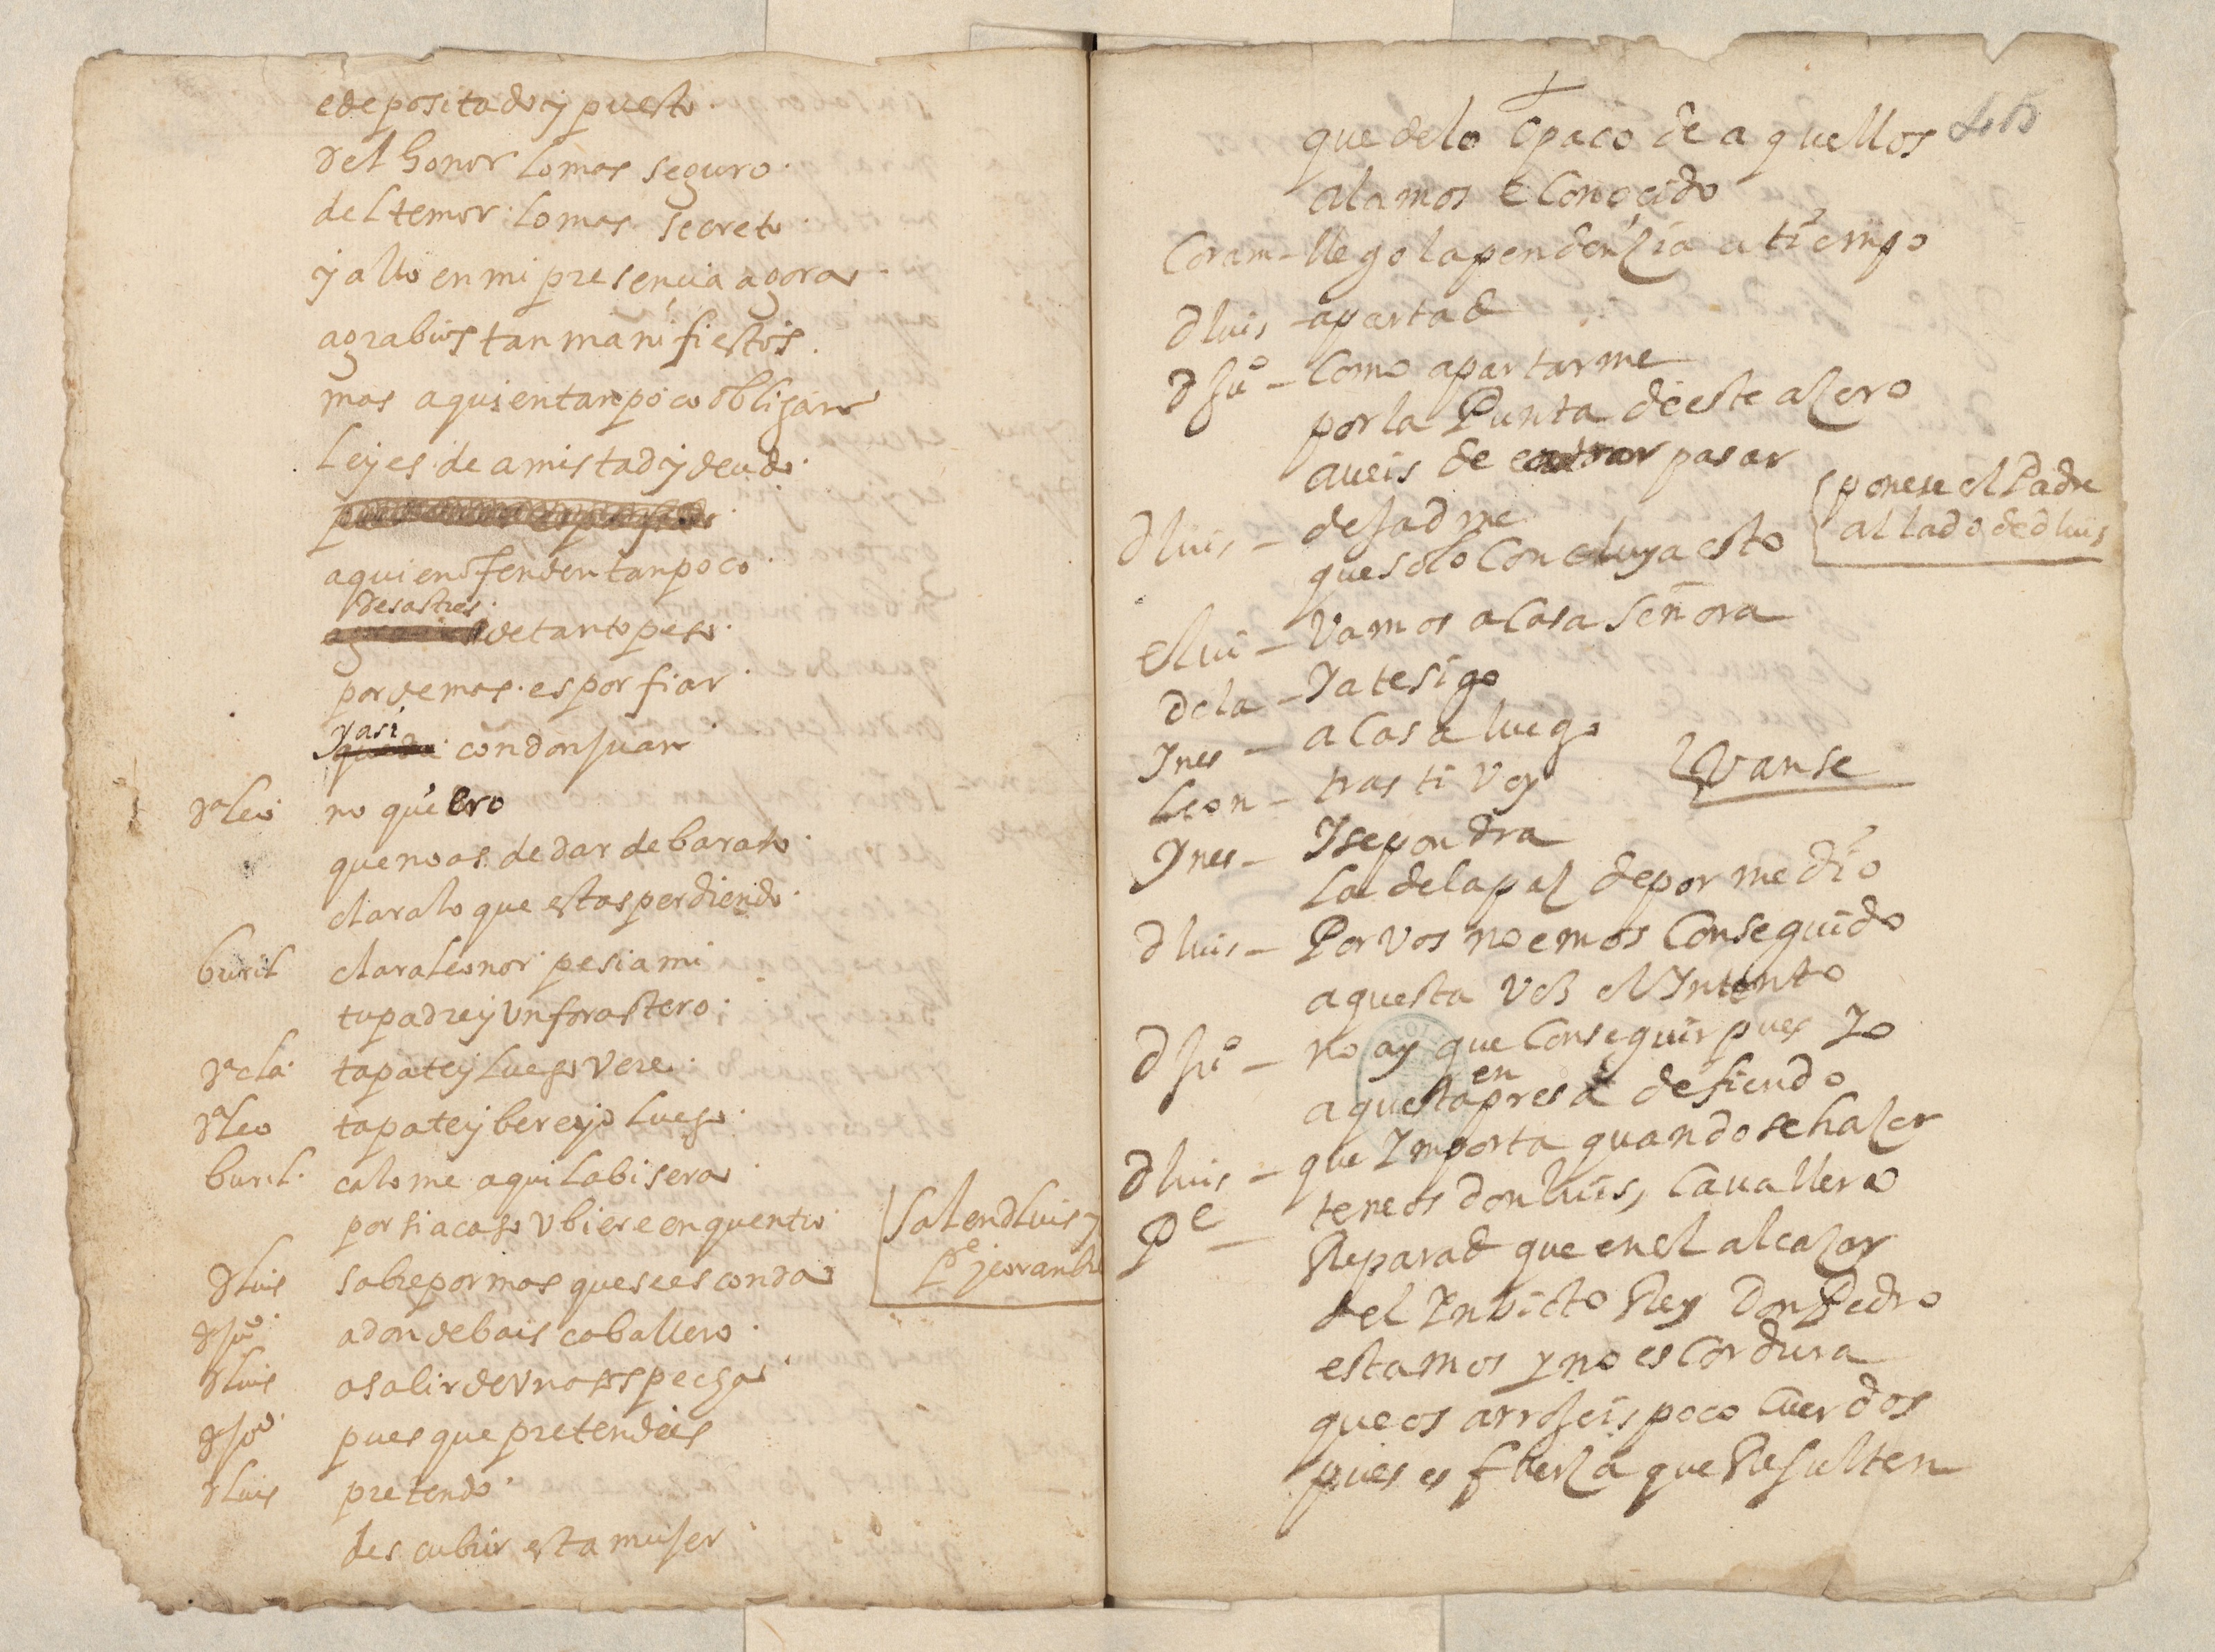 edepositado y puesto.
del honor lo mas seguro.
del temor. lo mas. secreto.
y allo en mi presencia agora.
agrabios tan manifiestos.
mas a quien tan poco obligan
leyes de amistad y deudo.
a quien ofenden tan poco.
desastres.
de tanto peso.
por demas. es porfiar.
y asi
con don juan
da leo no quiero
que no as. de dar de barato.
claralo que estas perdiendo.
buril clara leonor. pesia mi
tu padre y un forastero.
da cla. tapate y luego vere.
da leo tapate y bere yo luego.
buril. calome aqui la bisera.
por si acaso ubiere enquentro.
salen d luis y
Pe y corambre
d luis sabre por mas que se esconda
d juo. adonde bais caballero.
d luis a salir de una sospecha.
d juo. pues que pretendeis
d luis pretendo.
descubrir esta mujer
que de lo opaco de aquellos
alamos e conocido
Coram - llego la pendençia a tiempo
d luis - apartad
d juo - Como apartarme
por la Punta de este açero
aveis de pasar
ponese el Padre
al lado de d luis
d luis - dejadme
que solo Concluya esto
elvi - Vamos a Casa Señora
d cla - Ya te sigo
Ynes - a Casa luego
Leon - tras ti voy
Vanse
Ynes - Y se pondra
la de la paz de por medio
d luis - Por vos no emos Conseguido
aquesta vez el Yntento
d juo - no ay que Conseguir pues Yo
en
aquesta presa defiendo
d luis - que Importa quando se haçer
Pe - teneos don luis, Cavallero
Reparad que en el alcaçar
del Inbicto Rey Don Pedro
estamos y no es Cordura
que os arrojeis poco Cuerdos
pues es fuerça que Resulten